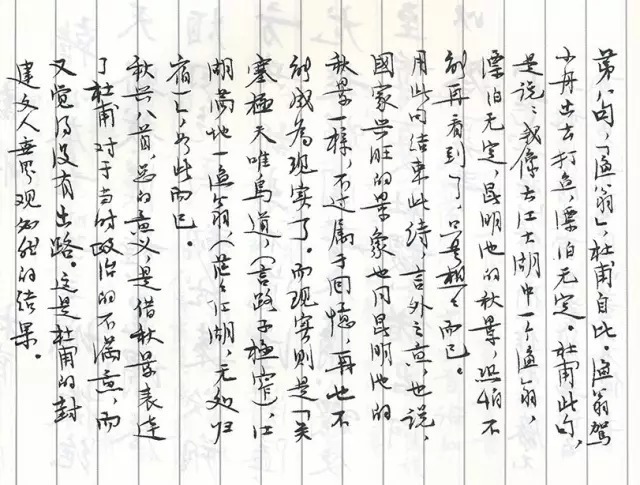 第八句,「漁翁」,杜甫自比。漁翁驾
小舟出去打鱼,漂泊无定。杜甫此句,
是说:我像长江大湖中一个漁翁,
漂泊无定,昆明池的秋景,恐怕不
能再看到了,只是想想而已。
用此句结束此诗,言外之意,也说,
國家兴旺的景象也同昆明池的
秋景一样,不过属于回憶,再也不
能成为现实了。而现实则是「关
塞極天唯鸟道,(言路子極窄),江
湖满地一漁翁,(茫々江湖,无处归
宿」,如此而已。
秋兴八首,总的意义,是借秋景表达
了杜甫对于当时政治的不满意,而
又觉得没有出路。这是杜甫的封
建文人世界观必然的结果。